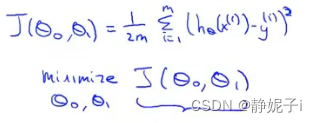 J(θ₀,θ₁) = 1/2m ∑ᵢ₌₁ᵐ (h_θ(x⁽ⁱ⁾)-y⁽ⁱ⁾)²
minimize J(θ₀,θ₁)
θ₀,θ₁
CSDN @静妮子i